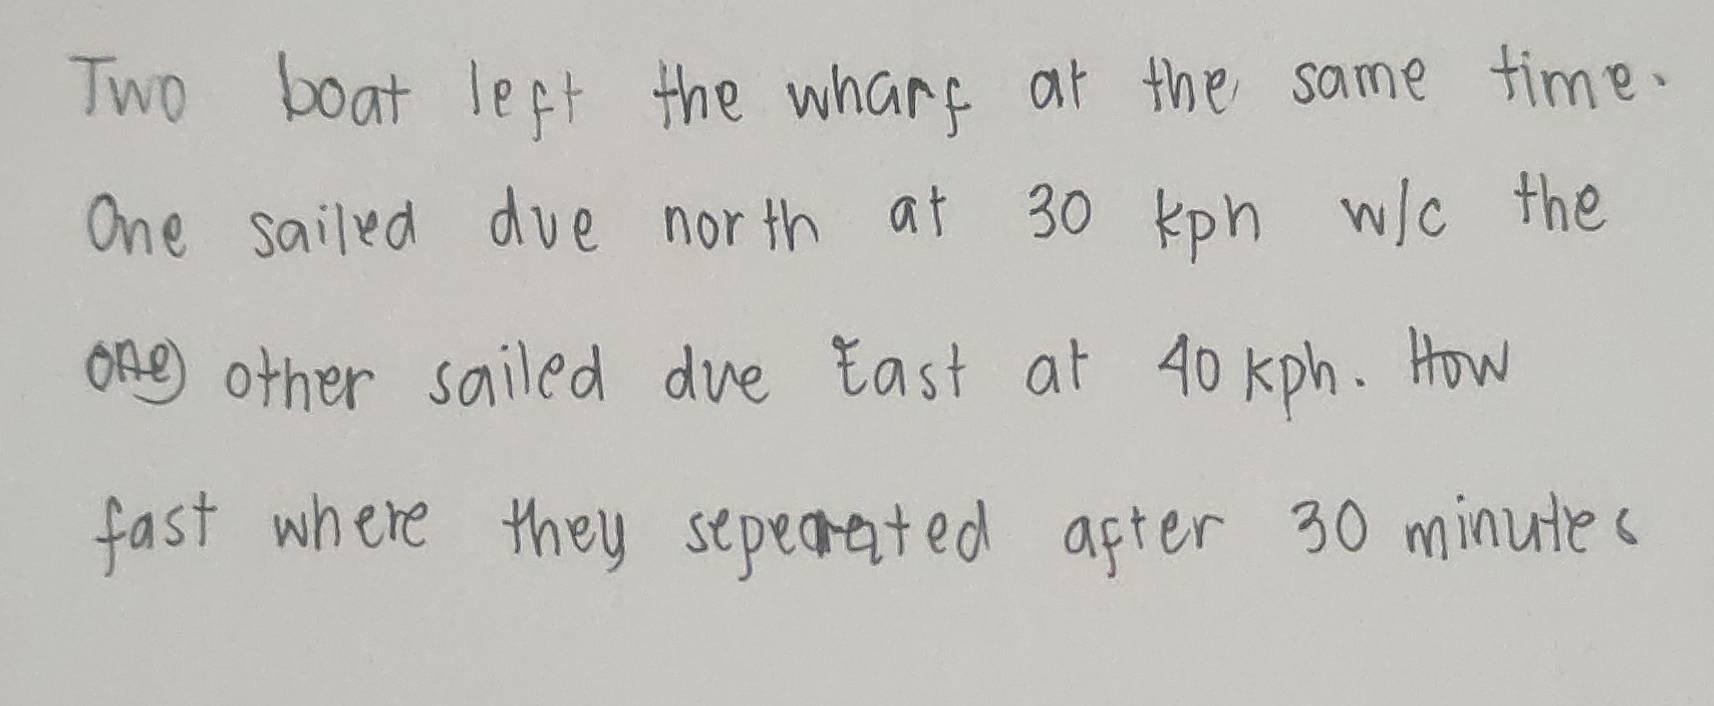 Two boat left the wharf at the same time.
One sailed due north at 30 kph w/c the
other sailed due East at 40 kph. How
fast where they seperated after 30 minutes